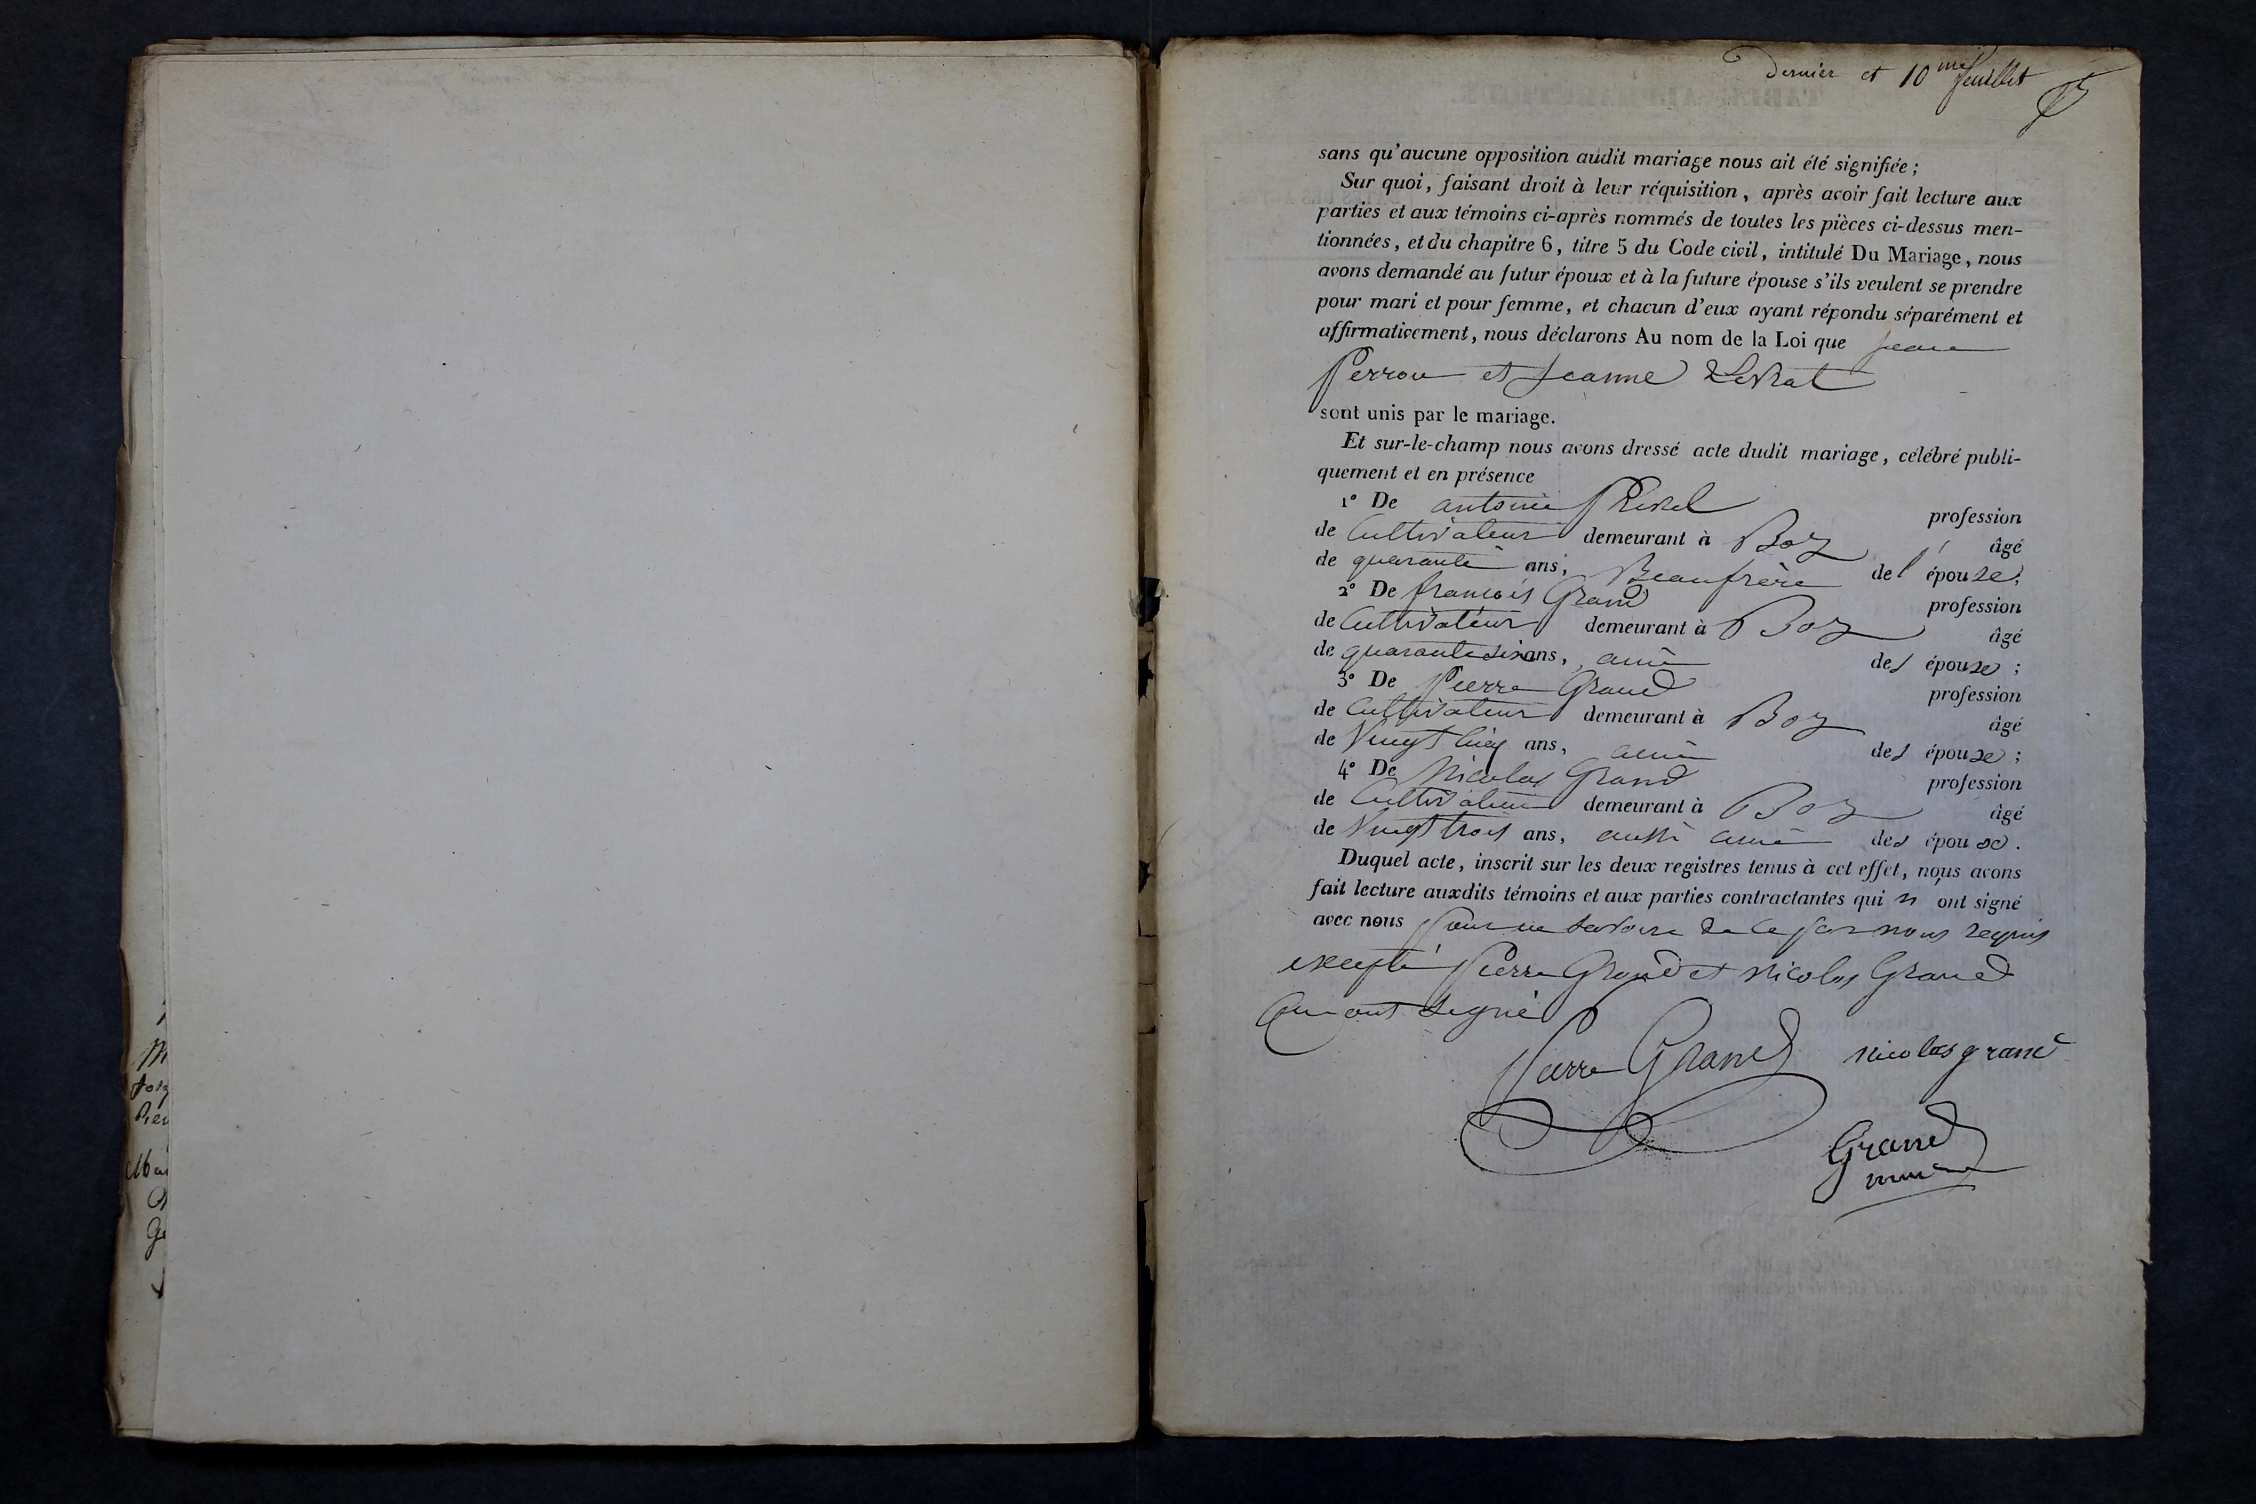 Dernier et 10me feuillet
sans qu'aucune opposition audit mariage nous ait été signifiée ;
Sur quoi, faisant droit à leur réquisition, après avoir fait lecture aux
parties et aux témoins ci-après nommés de toutes les pièces ci-dessus men-
tionnées, et du chapitre 6, titre 5 du Code civil, intitulé Du Mariage, nous
avons demandé au futur époux et à la future épouse s'ils veulent se prendre
pour mari et pour femme, et chacun d'eux ayant répondu séparément et
affirmativement, nous déclarons Au nom de la Loi que jean
Perron et Jeanne
sont unis par le mariage.
Et sur-le-champ nous avons dressé acte dudit mariage, célébré publi-
quement et en présence
1° De antoine profession
de Cultivateur demeurant à Boz âgé
de quarante ans, Beaufrère de l' épouse ;
2° De francois Grand profession
de Cultivateur demeurant à Boz âgé
de quarante six ans, ami des épouse ;
3° De Pierre Grand profession
de Cultivateur demeurant à Boz âgé
de Vingt cinq ans, ami des épouse ;
4° De Nicolas Grand profession
de Cultivateur demeurant à Boz âgé
de Vingt trois ans, aussi ami des épouse.
Duquel acte, inscrit sur les deux registres tenus à cet effet, nous avons
fait lecture auxdits témoins et aux parties contractantes qui n'ont signé
avec nous pour ne savoir de ce par nous requis
excepté Pierre Grand et Nicolas Grand
qui ont signé
Pierre Grand nicolas grand
Grand
maire